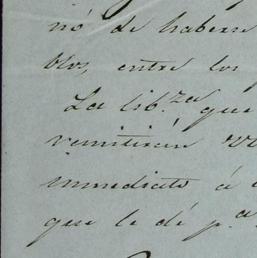 nó de haberse
blos, entre los
La lib.za que
remitirán
inmediato á
que le dé p.a